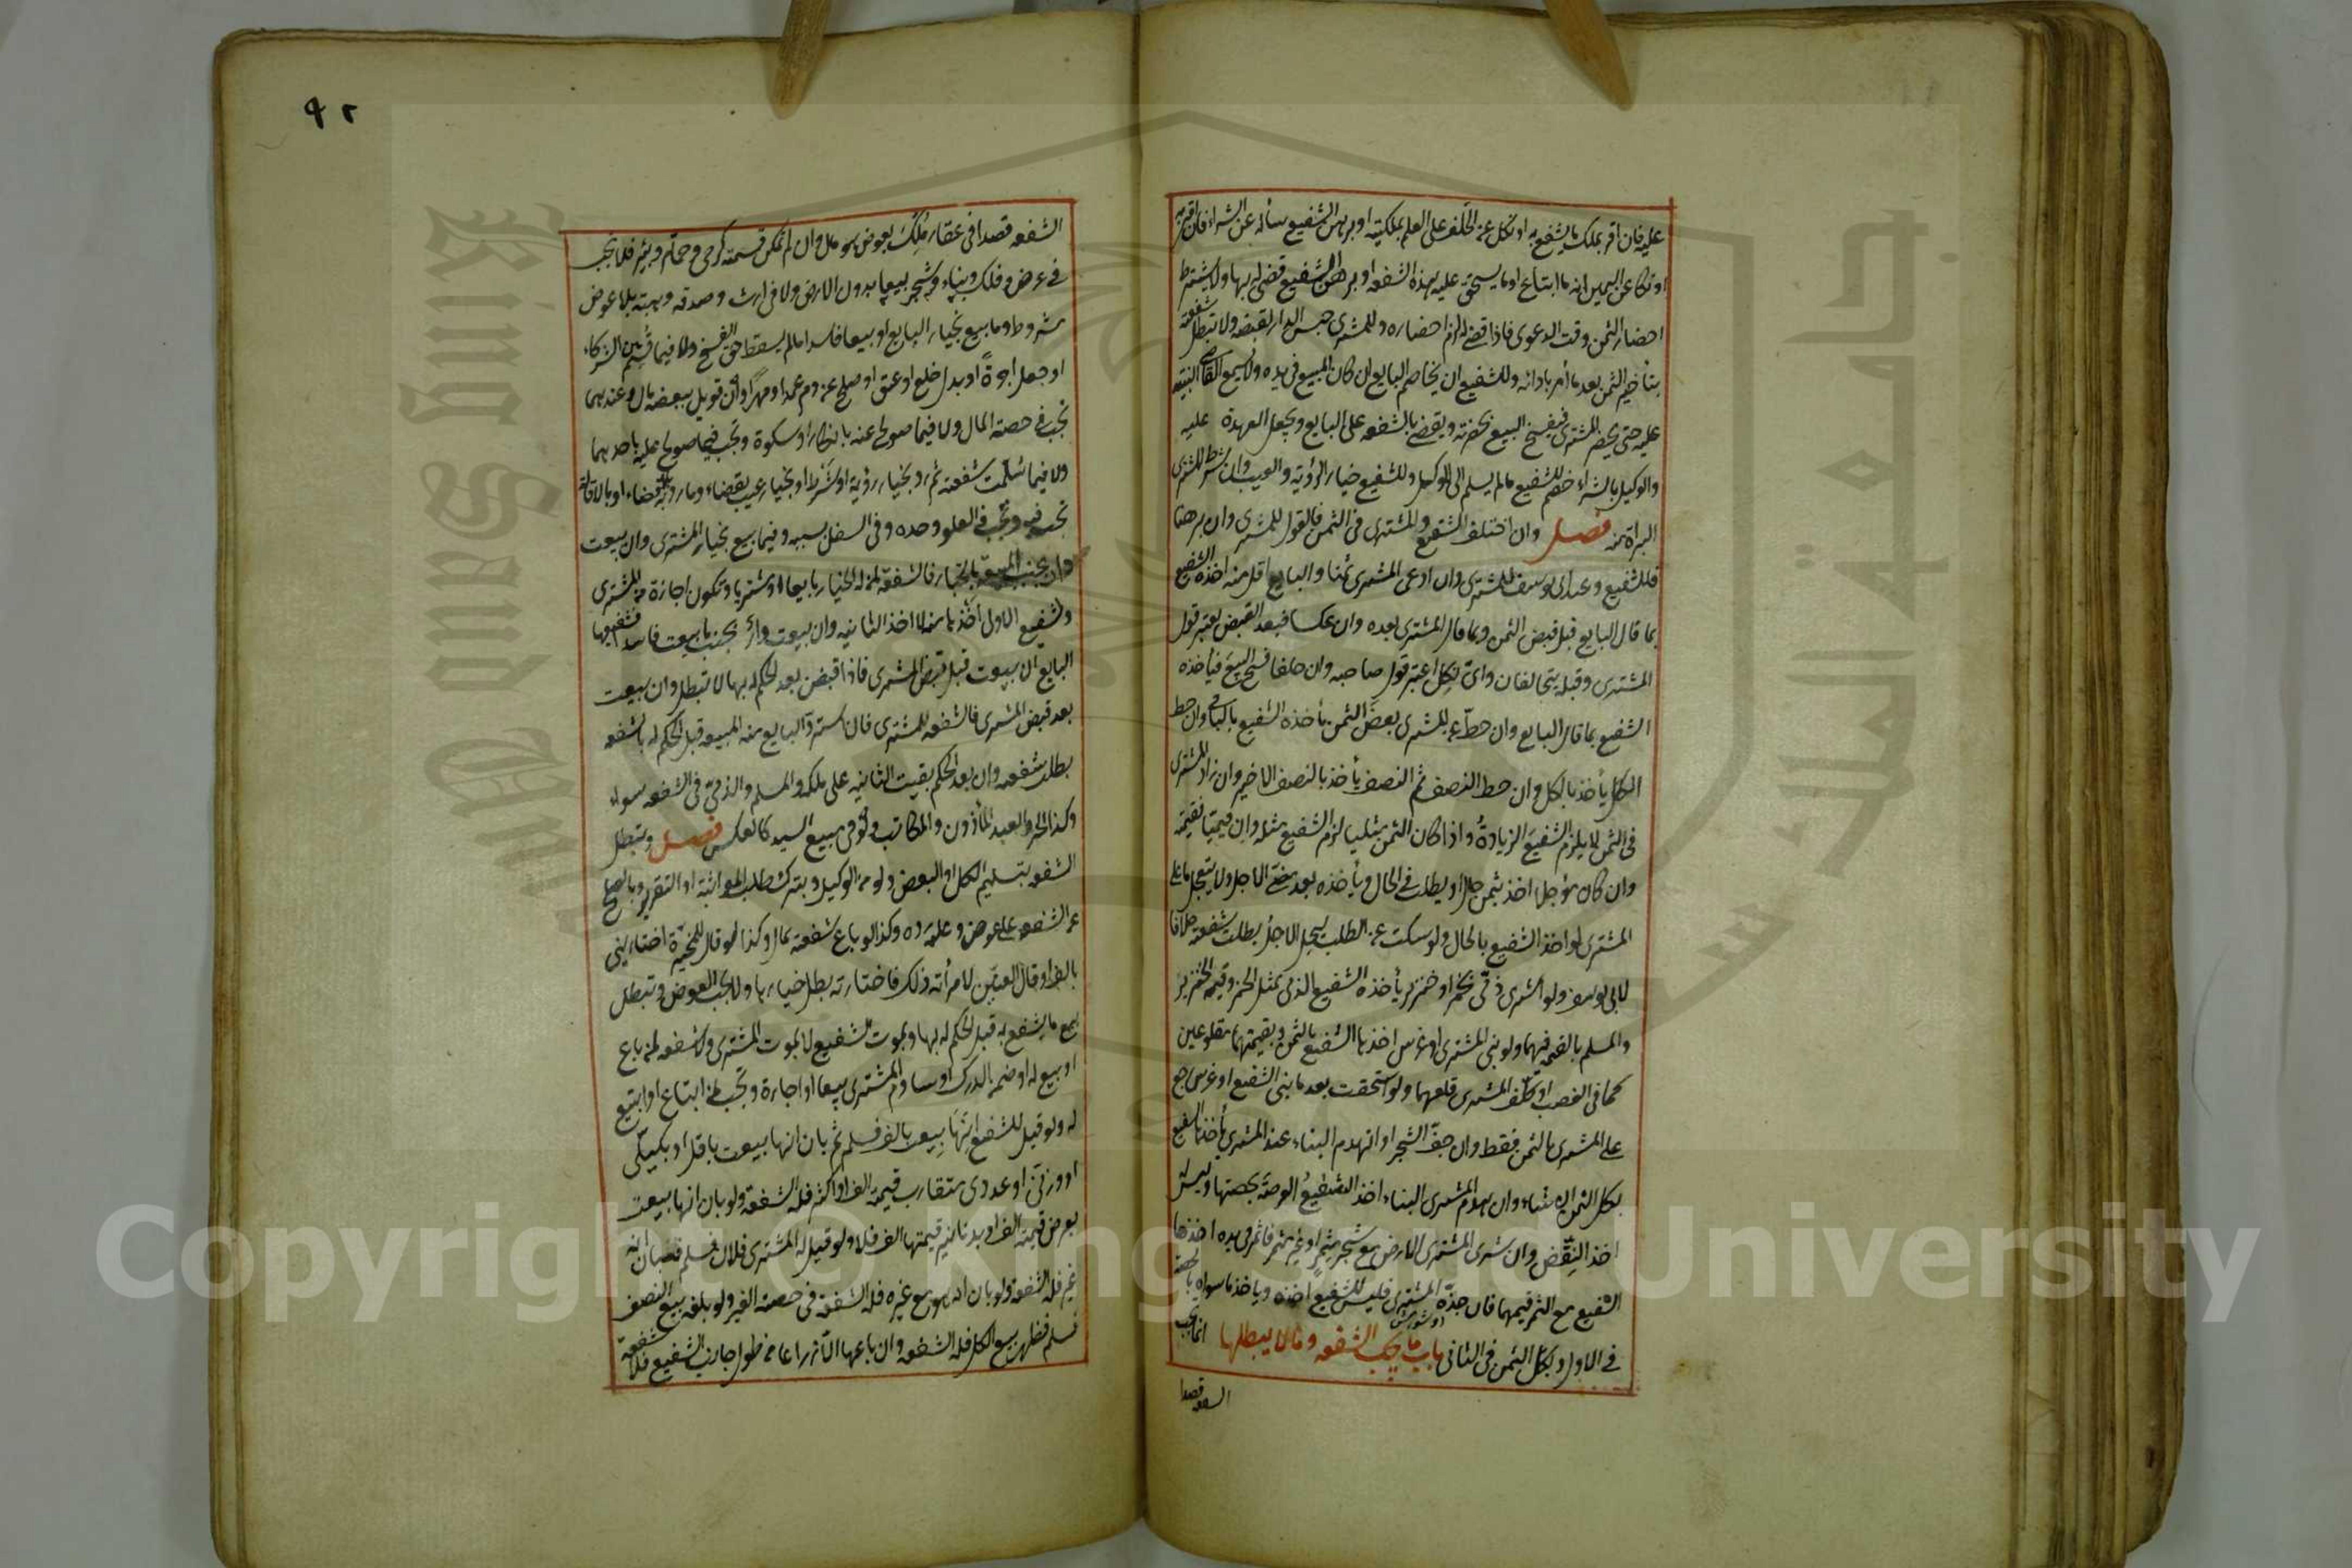 عليه فان اقر بملك ما يشفع به او نكل عن الحلف على العلم بملكيته او برهن الشفيع سأله عن الشراء فان اقر به
او نكل عن اليمين انه ما ابتاع او ما يستحق عليه هذه الشفعه او برهن الشفيع قضى له بها ولا يشترط
احضار الثمن وقت الدعوى فاذا قضى له لزم احضاره وللمشترى حبس الدار لقبضه ولا تبطل شفعته
بتأخير الثمن بعد ما أمر بادائه وللشفيع ان يخاصم البايع ان كان المبيع فى يده ولا يسمع القاضى البينة
عليه حتى يحضر المشترى فيفسخ البيع بحضرته ويقضى بالشفعه على البايع ويجعل العهدة عليه
والوكيل بالشراء خصم للشفيع مالم يسلم الى الموكل وللشفيع خيار الرؤية والعيب وان شرط المشترى
البراة منه فصل وان اختلف الشفيع والمشترى فى الثمن فالقول للمشترى وان برهنا
فللشفيع وعند ابى يوسف للمشترى وان ادعى المشترى ثمنا والبايع اقل منه اخذه الشفيع
بما قال البايع قبل قبض الثمن وبما قال المشترى بعده وان عكسا فبعد القبض يعتبر قول
المشترى وقبله يتحالفان واى نكل اعتبر قول صاحبه وان حلفا فسخ البيع فيأخذه
الشفيع بما قال البايع وان حط عن المشترى بعض الثمن يأخذه الشفيع بالباقى وان حط
الكل يأخذ بالكل وان حط النصف ثم النصف يأخذ بالنصف الاخير وان زاد المشترى
فى الثمن لا يلزم الشفيع الزيادة واذا كان الثمن مثليا لزم الشفيع مثله وان قيميا فقيمته
وان كان مؤجلا اخذ بثمن حال او يطلب فى الحال ويأخذه بعد مضى الاجل ولا يتعجل ما على
المشترى لو اخذ الشفيع بالحال ولو سكت عن الطلب ليحل الاجل بطلت شفعته خلافا
لابى يوسف ولو اشترى ذمى بخمر او خنزير يأخذه الشفيع الذمى بمثل الخمر وقيمة الخنزير
والمسلم بالقيمه فيهما ولو بنى المشترى او غرس اخذها الشفيع بالثمن وبقيمتهما مقلوعين
كما فى الغصب او كلف المشترى قلعهما ولو استحقت بعد ما بنى الشفيع او غرس رجع
على المشترى بالثمن فقط وان جف الشجر او انهدم البناء عند المشترى يأخذها الشفيع
بكل الثمن ان شاء وان هدم المشترى البناء اخذ الشفيع العرصة بحصتها وليس له
اخذ النقض وان شرى المشترى الارض مع شجر مثمر او غير مثمر فاثمر فى يده اخذها
الشفيع مع الثمر فيهما فان جذه المشترى فليس للشفيع اخذه وياخذ ما سواه بالحصة
فى الاول وبكل الثمن فى الثانى باب ما تجب الشفعه وما لا يبطلها انما تجب
الشفعه قصدا
٩٢
الشفعه قصدا فى عقار ملك بعوض هو مال وان لم تمكن قسمته كرحى وحمام وبئر فلا تجب
فى عرض وفلك وبناء وشجر بيعا بدون الارض ولا فى ارث وصدقه وهبة بلا عوض
مشروط وما بيع بخيار البايع او بيعا فاسدا مالم يسقط حق الفسخ ولا فيما قسم بين الشركاء
او جعل اجرة او بدل خلع او عتق او صلح عن دم عمد او مهرا وان قوبل ببعضه مال وعندهما
تجب فى حصة المال ولا فيما صولح عنه بانكار او سكوة وتجب فيما صولح عليه باحدهما
ولا فيما سلمت شفعته ثم رد بخيار رؤية او شرط او بخيار عيب بقضاء وما رد به بلا قضاء او بالاقالة
تجب فيه وتجب فى العلو وحده وفى السفل بسببه وفيما بيع بخيار المشترى وان بيعت
دار بجنب المبيعة بالخيار فالشفعة لمن له الخيار بايعا او مشتريا وتكون اجازة من المشترى
ولشفيع الاول اخذها منه لا اخذ الثانيه وان بيعت دار بجنب ما بيعت فاسدا فشفيعها
البايع ان بيعت قبل قبض المشترى فاذا قبض بعد الحكم له بها لا تبطل وان بيعت
بعد قبض المشترى فالشفعه للمشترى فان استرد البايع منه المبيعه قبل الحكم له بالشفعه
بطلت شفعته وان بعد الحكم بقيت الثانيه على ملكه والمسلم والذمى فى الشفعه سواء
وكذا الحر والعبد المأذون والمكاتب ولو فى مبيع السيد كالعكس فصل وتبطل
الشفعه بتسليم الكل او البعض ولو من الوكيل وبترك طلب المواثبة او التقرير وبالصلح
عن الشفعه على عوض وعليه رده وكذا لو باع شفعته بمال وكذا لو قال للمخيرة اختارينى
بالف او قال العنين لامرأته ذلك فاختارته بطل خيارها ولا يجب العوض وتبطل
ببيع ما يشفع به قبل الحكم له بها وبموت الشفيع لا بموت المشترى ولا شفعه لمن باع
او بيع له او ضمن الدرك او ساوم المشترى بيعا او اجارة وتجب لمن ابتاع او ابتيع
له ولو قيل للشفيع انها بيعت بالف فسلم ثم بان انها بيعت باقل او بكيلى
او وزنى او عددى متقارب قيمته الف او اكثر فله الشفعة ولو بان انها بيعت
بعرض قيمته الف او بدنانير قيمتها الف فلا ولو قيل له المشترى فلان فسلم فبان انه
غيره فله الشفعه ولو بان انه هو مع غيره فله الشفعة فى حصة الغير ولو بلغه بيع النصف
فسلم فظهر بيع الكل فله الشفعه وان باعها الا ذراعا من طول جانب الشفيع فلا شفعة
Copyright © King Saud University
جامعة الملك سعود
King Saud University